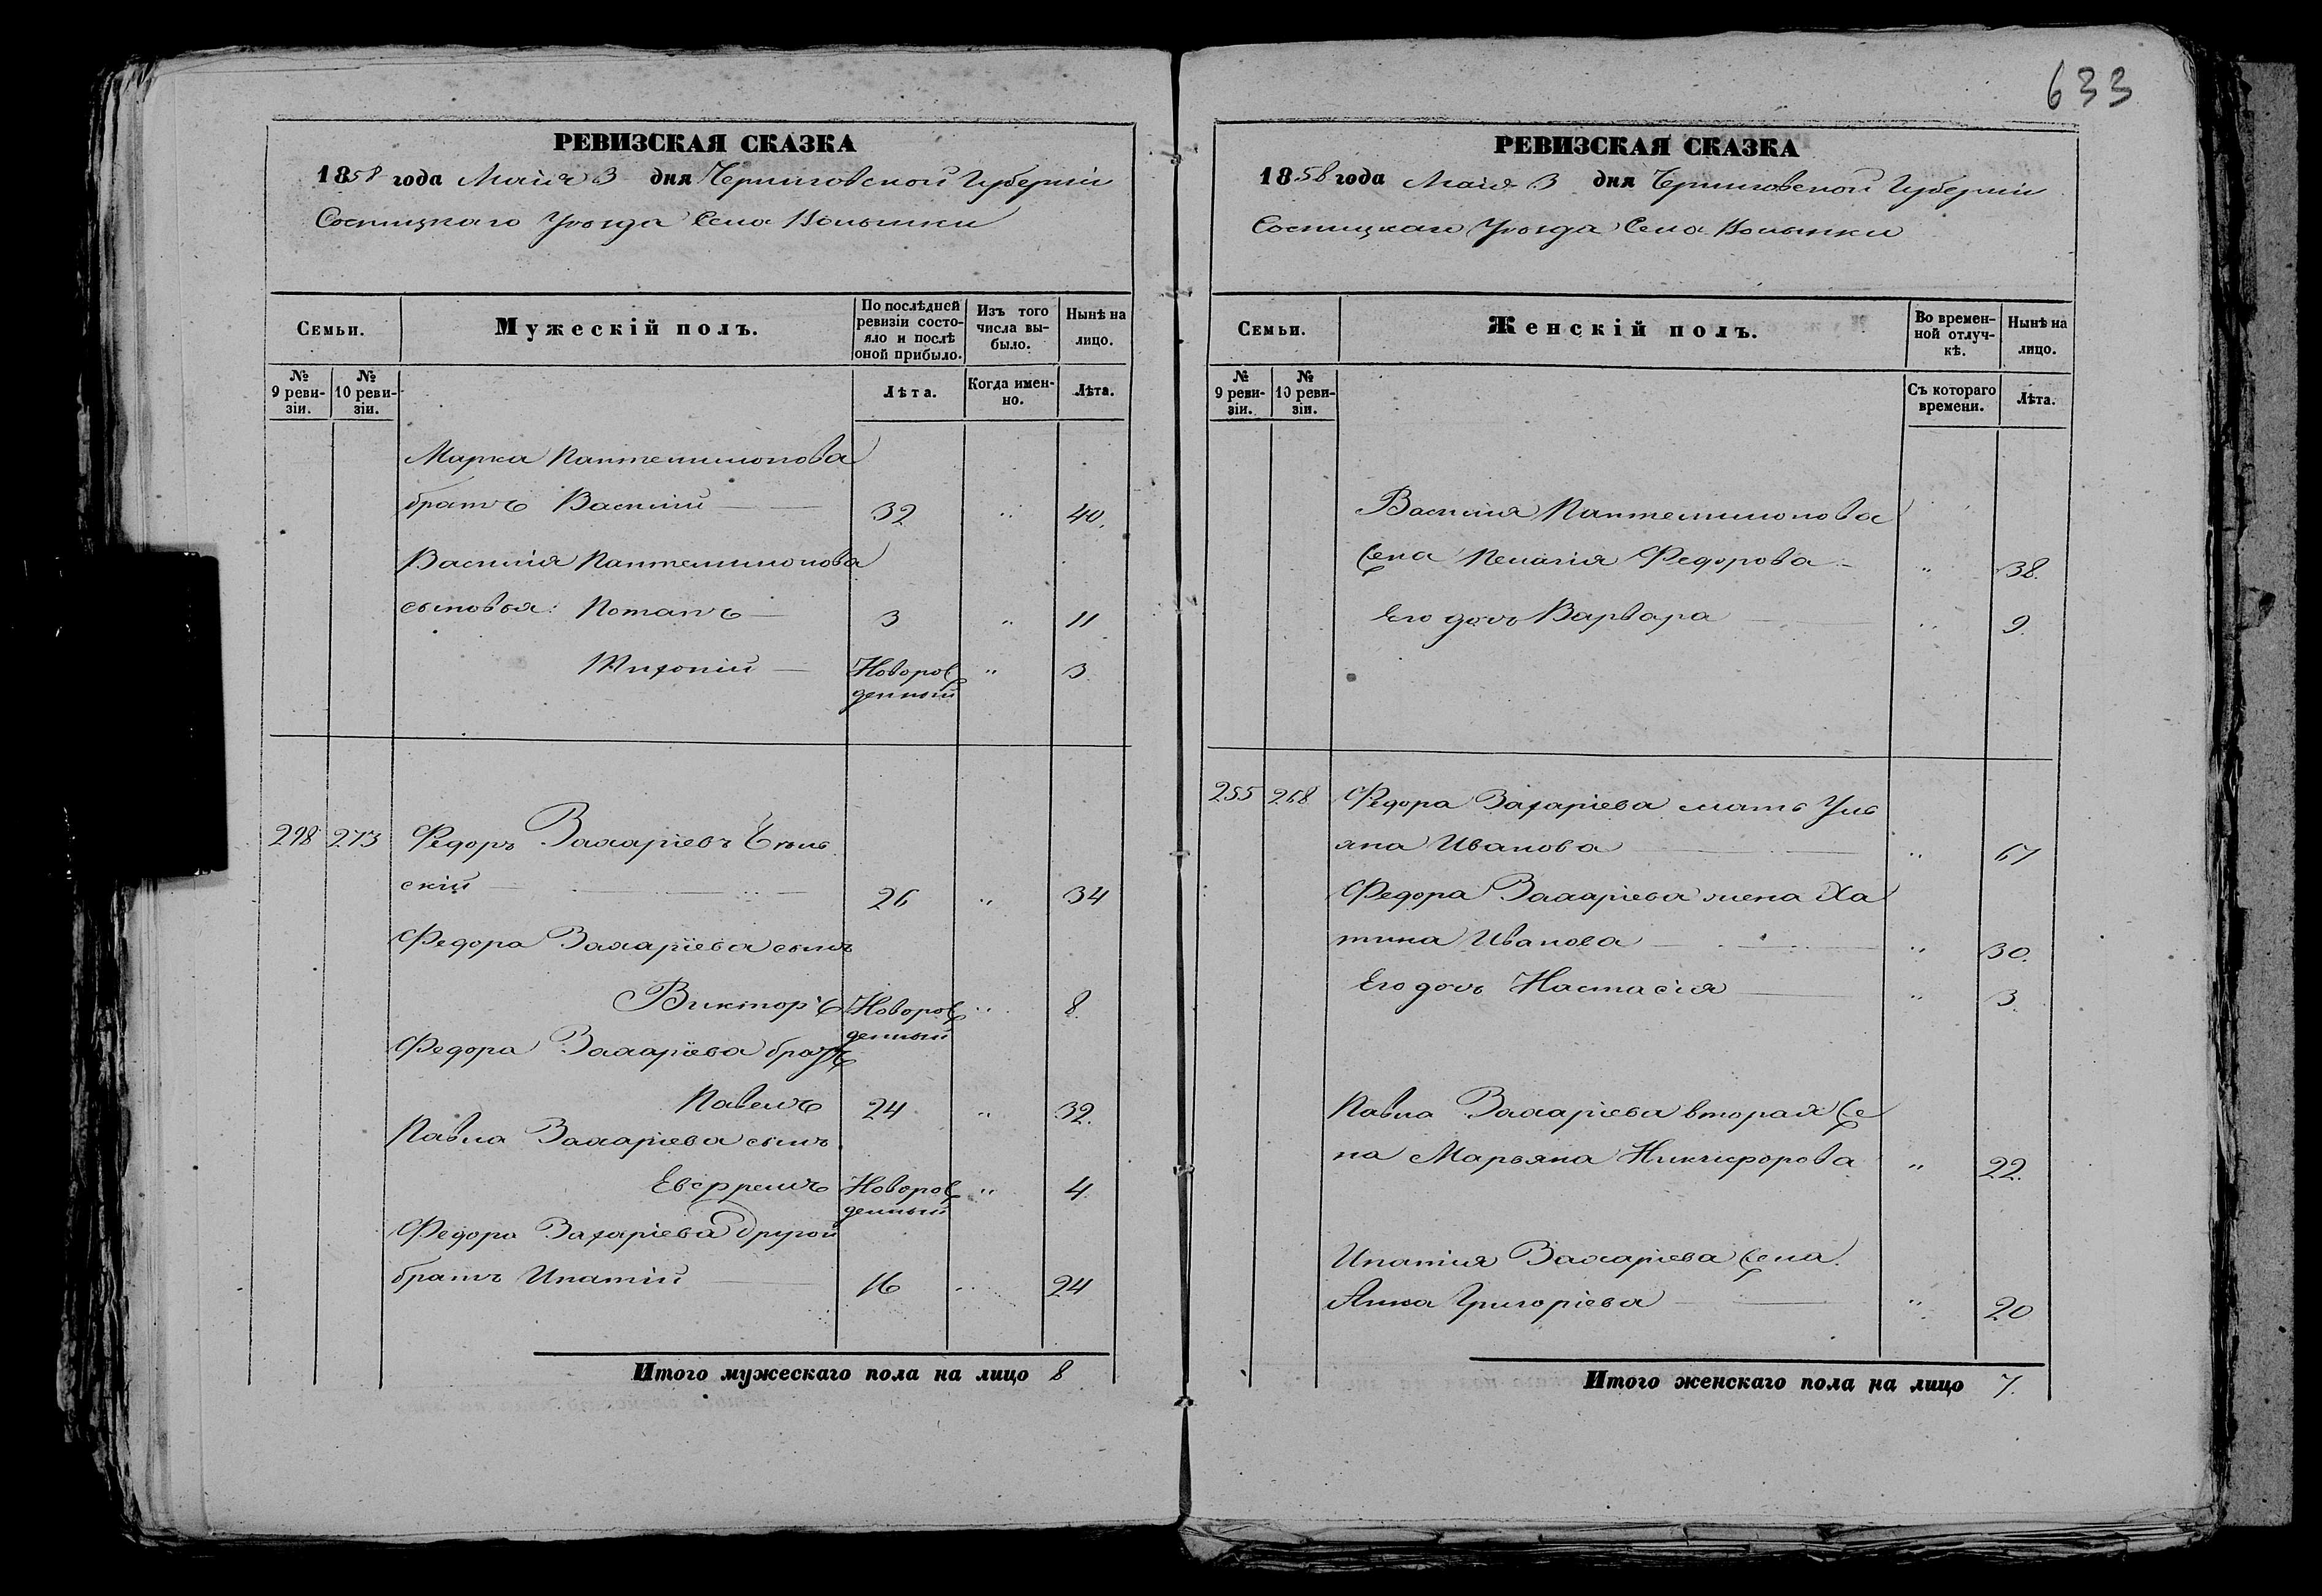 633
РЕВИЗСКАЯ СКАЗКА
1858 года Маія 3 дня Черниговской Губерніи
Сосницкаго Уѣзда Села Волынки
Семьи.
Мужескій полъ.
По послѣдней ревизіи состояло и послѣ оной прибыло.
Изъ того числа выбыло.
Нынѣ на лицо.
№ 9 ревизіи.
№ 10 ревизіи.
Лѣта.
Когда именно.
Лѣта.
Марка Пантелимонова
братъ Василій 32 " 40.
Василія Пантелимонова
сыновья: Потапъ 3 " 11
Тихоній Новорож " 3
денный
298 273 Федоръ Захаріевъ
скій 26 " 34
Федора Захаріева сынъ
Викторъ Новорож " 8.
денный
Федора Захаріева братъ
Павелъ 24 " 32.
Павла Захаріева сынъ
Евфремъ Новорож " 4
денный
Федора Захаріева другой
братъ Ипатій 16 " 24
Итого мужескаго пола на лицо 8
РЕВИЗСКАЯ СКАЗКА
1858 года Маія 3 дня Черниговской Губерніи
Сосницкаго Уѣзда Села Волынки
Семьи.
Женскій полъ.
Во временной отлучкѣ.
Нынѣ на лицо.
№ 9 ревизіи.
№ 10 ревизіи.
Съ котораго времени.
Лѣта.
Василія Пантелимонова
жена Пелагія Федорова " 38.
Его дочь Варвара " 9.
255 268 Федора Захаріева мать Уль
яна Иванова " 67
Федора Захаріева жена Ха
тина Иванова " 30.
Его дочь Настасія " 3.
Павла Захаріева вторая же
на Марьяна Никифорова " 22.
Ипатія Захаріева жена
Анна Григоріева " 20
Итого женскаго пола на лицо 7.